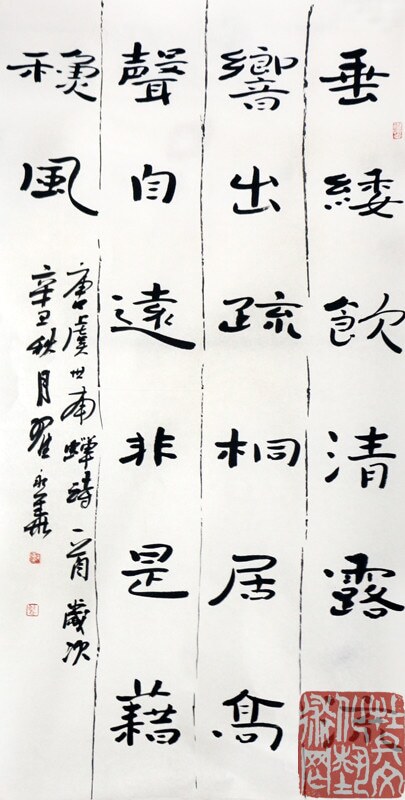 垂緌飲清露流
響出疏桐居高
聲自遠非是藉
穐風
唐虞世南蟬詩一首歲次
辛丑秋月翟永華